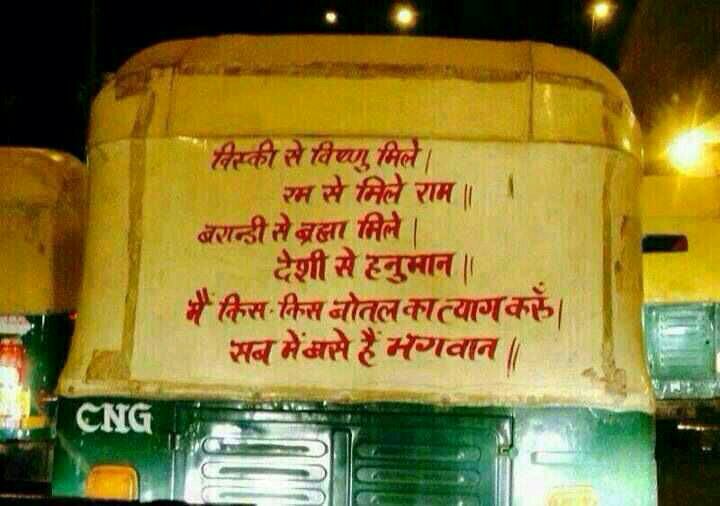 विस्की से विष्णु मिले।
रम से मिले राम॥
बरान्डी से ब्रह्मा मिले।
देशी से हनुमान॥
मैं किस-किस बोतल का त्याग करूँ।
सब में बसे हैं भगवान॥
CNG